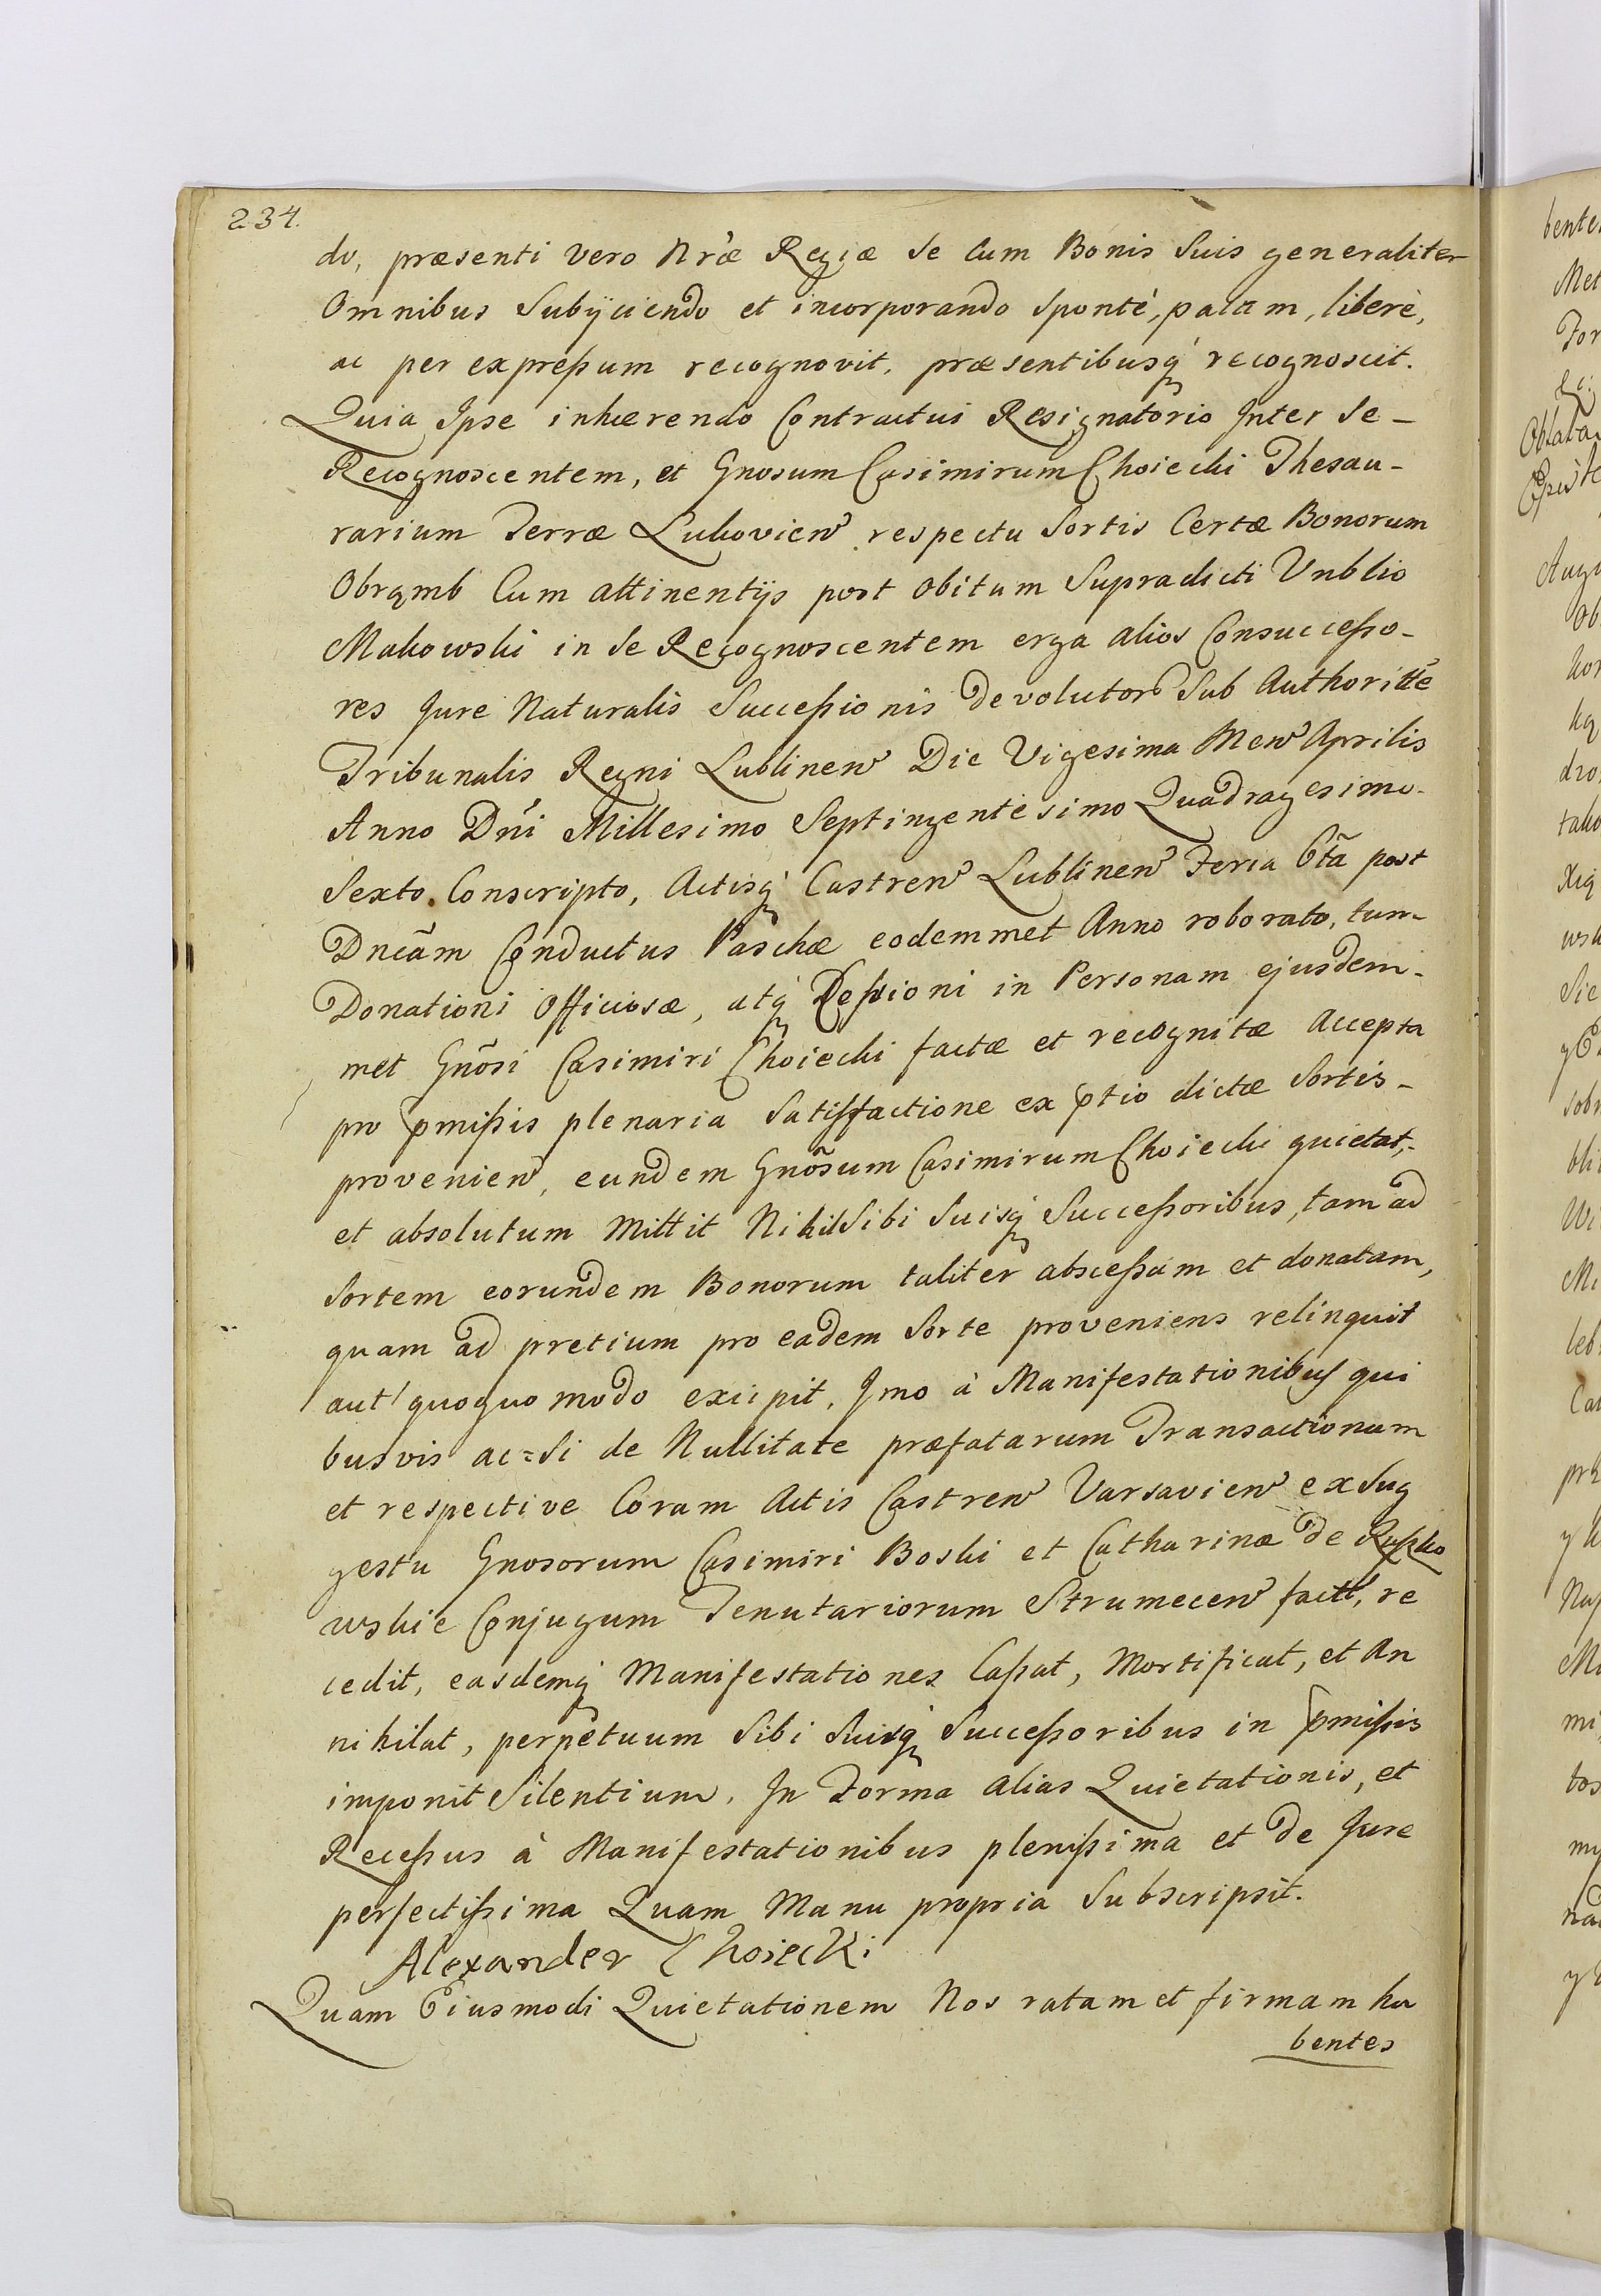 234.
do, præsenti vero Nræ Regiæ se cum Bonis Suis generaliter
Omnibus Subijciendo et incorporando Spontè, palam, liberè,
ac per expressum recognovit, præsentibusq́ recognoscit.
Quia Ipse inhærendo Contractui Resignatorio Inter Se-
Recognoscentem, et Gnosum Casimirum Choiecki Thesau-
rarium Terræ Lukovien respectu Sortis Certæ Bonorum
Cum attinentijs post obitum Supradicti
Makowski in Se Recognoscentem erga alios Consuccesso-
res Jure Naturalis Successionis devolutor Sub Authoritte
Tribunalis Regni Lublinen Die Vigesima Men Aprilis
Anno Dńi Millesimo Septingentesimo Quadragesimo-
Sexto Conscripto, Actisq́ Castren Lublinen Feria 6tã post
Dncãm Conductus Paschæ eodemmet Anno roborato, tum
Donationi Officiosæ, atq́ Cessioni in Personam ejusdem-
met Gnõsi Casimiri Choiecki factæ et recognitæ Accepta
pro pmissis plenaria Satisfactione ex ptio dictæ Sortis-
provenien, eundem Gnõsum Casimirum Choiecki quietat,-
et absolutum Mittit Nihil Sibi Suisq́ Successoribus, tam ad
Sortem eorundem Bonorum taliter abscessam et donatam,
quam ad pretium pro eadem Sorte proveniens relinquit
aut quoquo modo excipit, Imo à Manifestationibus qui
busvis ac=Si de Nullitate præfatarum Transactionum
et respective Coram Actis Castren Varsavien ex Sug
gestu Gnosorum Casimiri Boski et Catharinæ de Ruszko
wskie Conjugum Tenutariorum Strumecen factt, re
cedit, easdemq́ Manifestationes Cassat, Mortificat, et An
nihilat, perpetuum Sibi Suisq́ Successoribus in pmissis
imponit Silentium. In Forma alias Quietationis, et
Recessus à Manifestationibus plenissima et de Jure
perfectissima Quam Manu propria Subscripsit.
Alexander Choiecki
Quam Eiusmodi Quietationem Nos ratam et firmam ha
bentes